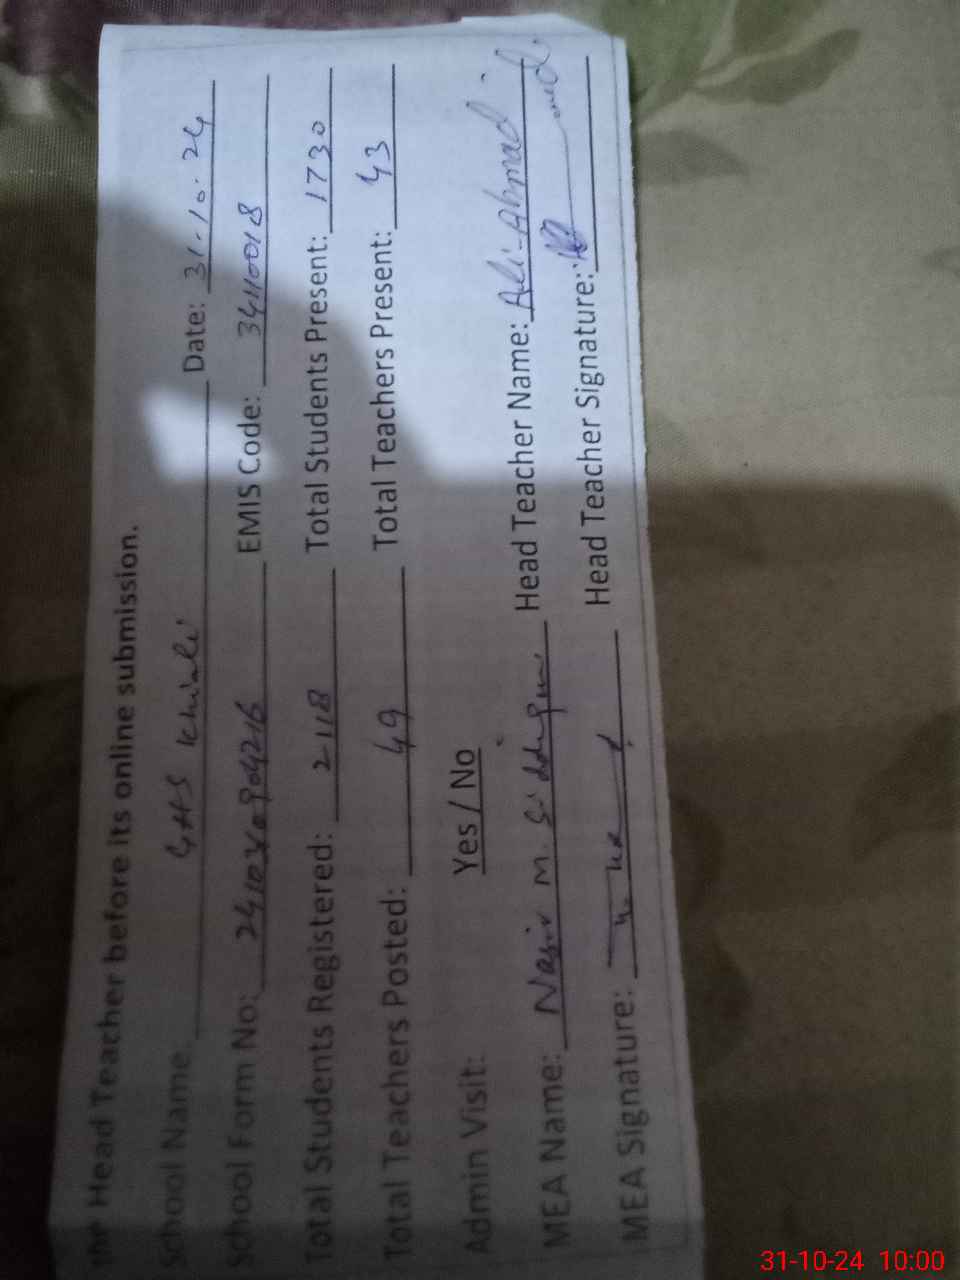 the Head Teacher before its online submission.
School Name: GHS Khiali Date: 31-10-24
School Form No: EMIS Code: 34110018
Total Students Registered: 2118 Total Students Present: 1730
Total Teachers Posted: 49 Total Teachers Present: 43
Admin Visit: Yes / No
MEA Name: Nasir M. Head Teacher Name: Ali Ahmad
MEA Signature: Head Teacher Signature:
31-10-24 10:00